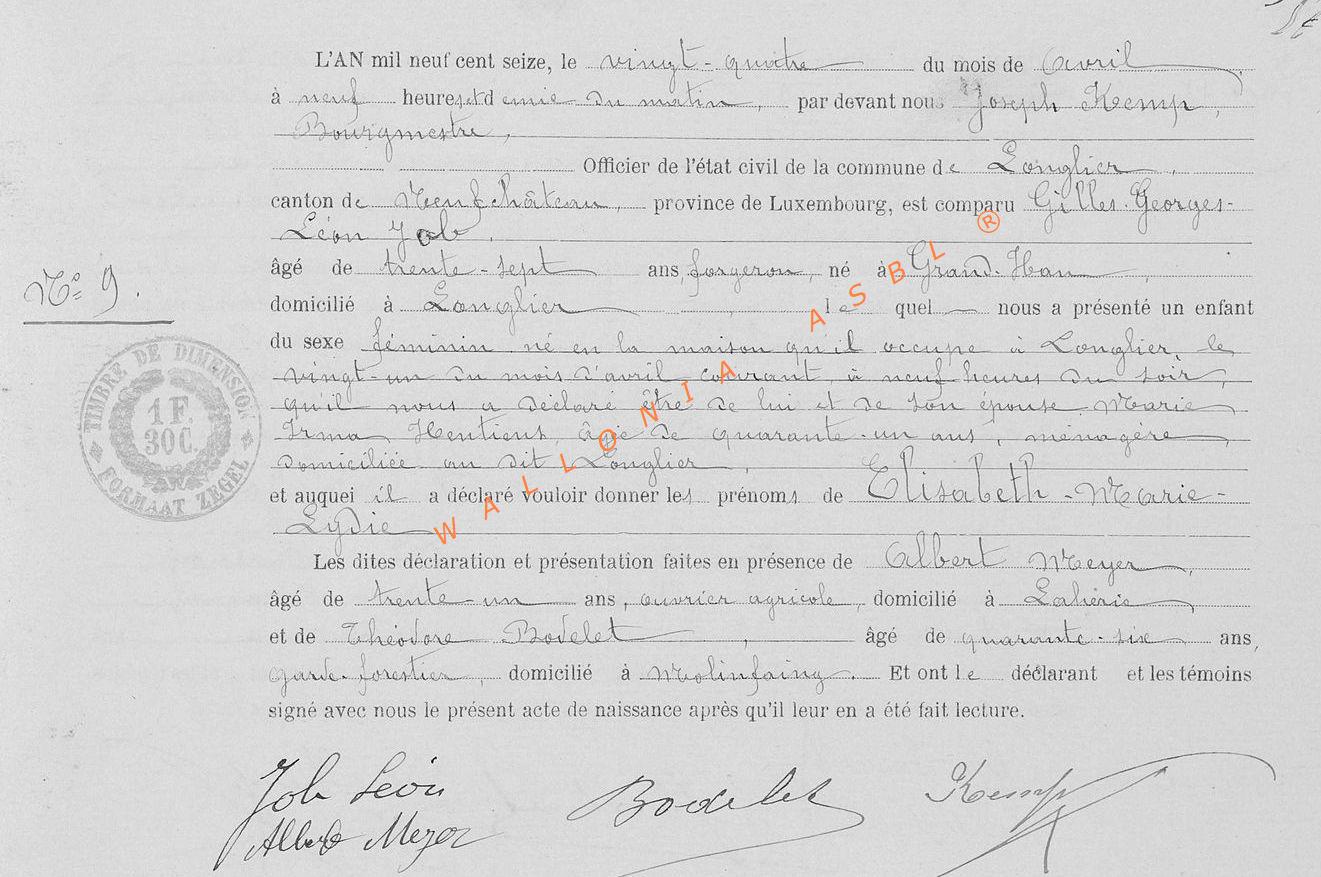 L'AN mil neuf cent seize, le vingt-quatre du mois de avril
à neuf heures et demie du matin, par devant nous Joseph Kemp,
Bourgmestre,
Officier de l'état civil de la commune de Longlier,
canton de Neufchâteau, province de Luxembourg, est comparu Gilles-Georges-
Léon Job,
âgé de trente-sept ans, forgeron, né à Grand-Han,
N° 9.
domicilié à Longlier, lequel nous a présenté un enfant
du sexe féminin né en la maison qu'il occupe à Longlier, le
vingt-un du mois d'avril courant, à neuf heures du soir,
qu'il nous a déclaré être de lui et de son épouse Marie
Irma Hentient, âgée de quarante-un ans, ménagère,
domiciliée au dit Longlier,
et auquel il a déclaré vouloir donner les prénoms de Elisabeth-Marie-
Lydie
Les dites déclaration et présentation faites en présence de Albert Meyer,
âgé de trente-un ans, ouvrier agricole, domicilié à Lahérie
et de Théodore Bodelet, âgé de quarante-six ans,
garde-forestier, domicilié à Molinfaing. Et ont le déclarant et les témoins
signé avec nous le présent acte de naissance après qu'il leur en a été fait lecture.
TIMBRE DE DIMENSION
1 F.
30C.
FORMAAT ZEGEL
WALLONIA ASBL ®
Job Léon Bodelet Kemp
Albert Meyer